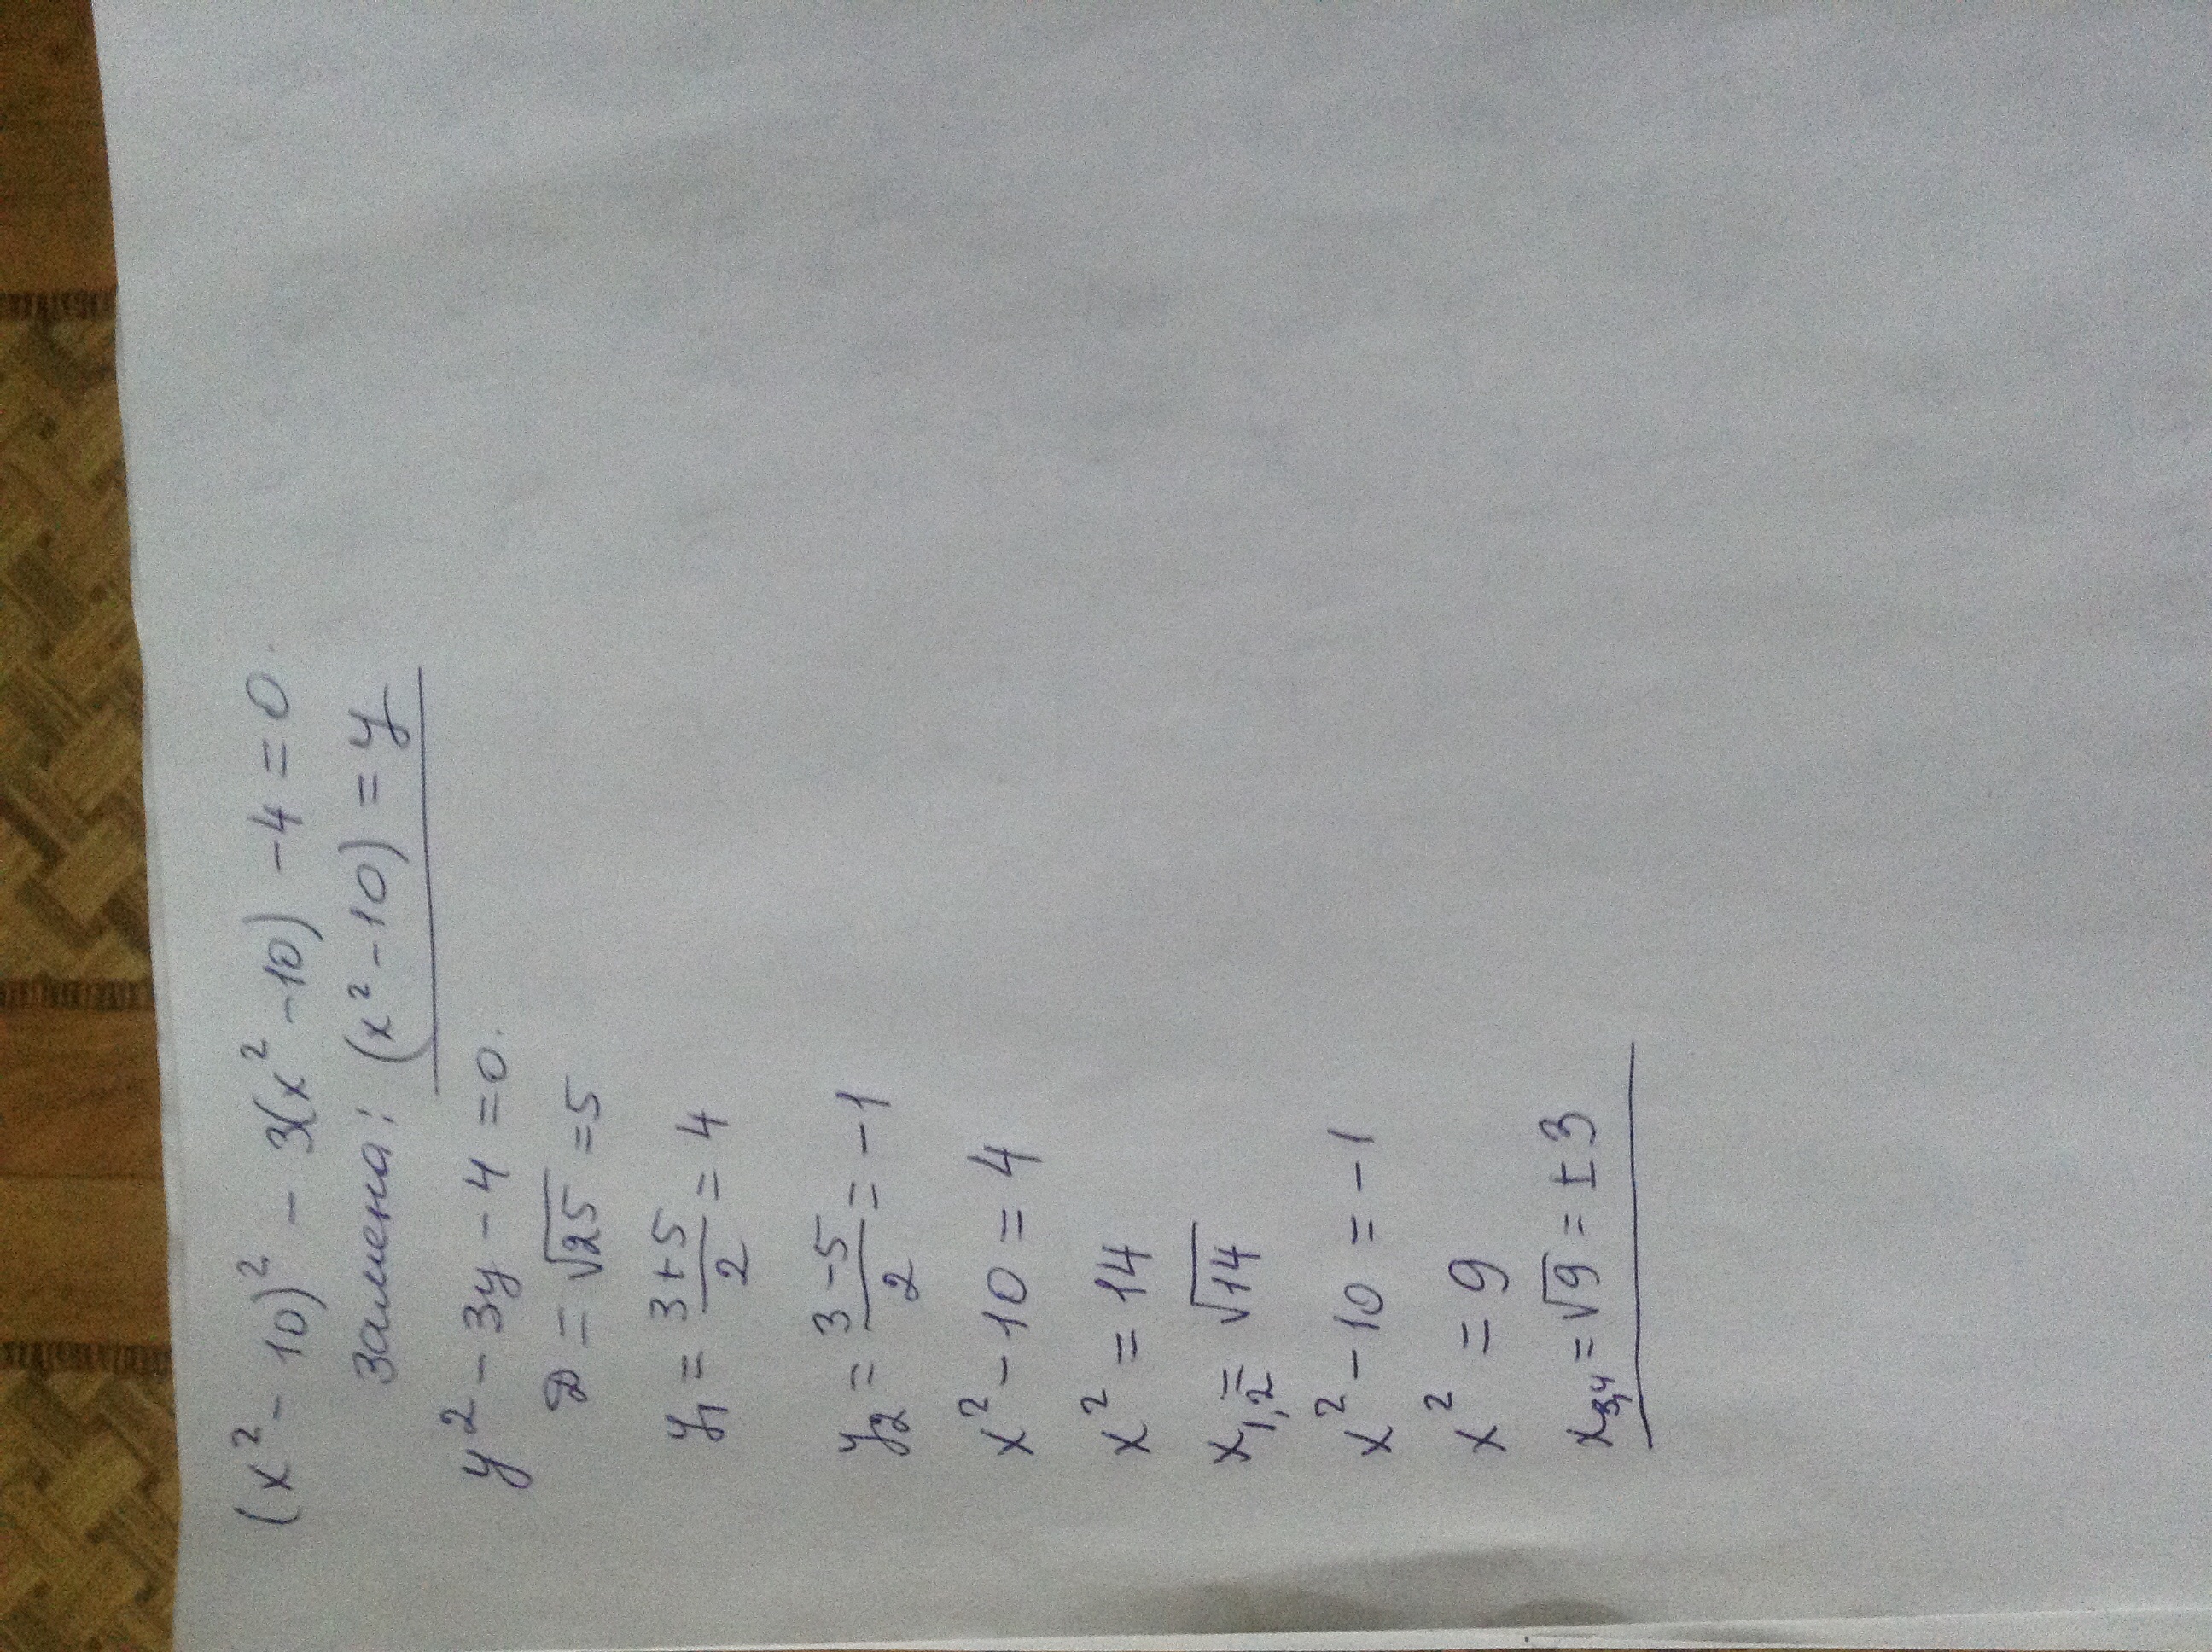 (x² - 10)² - 3(x² - 10) - 4 = 0.
замена: (x² - 10) = y
y² - 3y - 4 = 0.
D = √25 = 5
y₁ = (3+5)/2 = 4
y₂ = (3-5)/2 = -1
x² - 10 = 4
x² = 14
x₁,₂ = √14
x² - 10 = -1
x² = 9
x₃,₄ = √9 = ±3